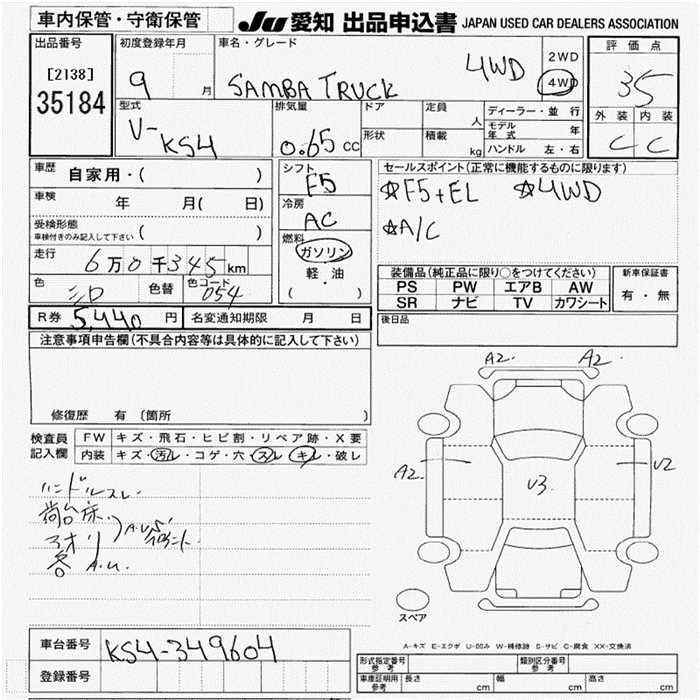 車内保管・守衛保管
JU 愛知 出品申込書 JAPAN USED CAR DEALERS ASSOCIATION
出品番号
[2138]
35184
初度登録年月
9 月
車名・グレード
SAMBA TRUCK 4WD
2WD
4WD
評価点
35
外装 内装
C C
型式
V-KS4
排気量
0.65 cc
ドア
形状
定員 人
積載 kg
ディーラー・並行
モデル年式 年
ハンドル 左・右
車歴 自家用・( )
車検 年 月( 日)
受検形態
車検付きのみ記入して下さい ( )
走行 6万0千345 km
色 色替 色コード 054
R券 5,440 円 名変通知期限 月 日
シフト
F5
冷房
AC
燃料
ガソリン
軽・油
( )
セールスポイント(正常に機能するものに限ります)
☆F5+EL ☆4WD
☆A/C
装備品(純正品に限り○をつけてください)
PS PW エアB AW
SR ナビ TV カワシート
新車保証書
有・無
後日品
注意事項申告欄(不具合内容等は具体的に記入して下さい)
修復歴 有 (箇所 )
検査員記入欄
FW キズ・飛石・ヒビ割・リペア跡・X要
内装 キズ・汚レ・コゲ・穴・スレ・キレ・破レ
ハンドルスレ
荷台床
アオリ
A.U
A2. A2.
A2. U3. U2
スペア
A-キズ E-エクボ U-凹み W-補修跡 S-サビ C-腐食 XX-交換済
車台番号 KS4-349604
登録番号
形式指定番号 参考
類別区分番号 参考
車庫証明用 参考 長さ cm 幅 cm 高さ cm